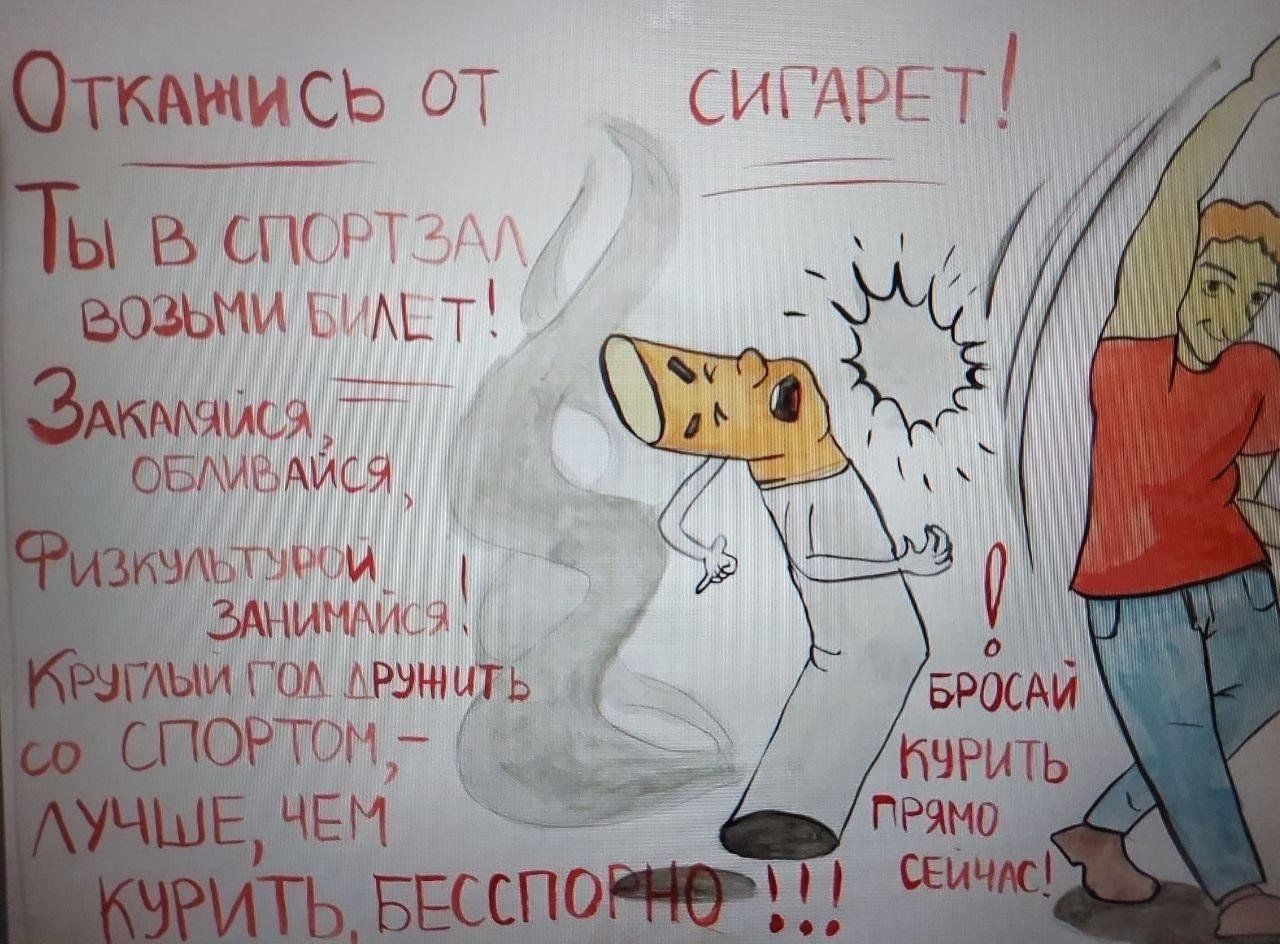 Откажись от сигарет!
Ты в спортзал
возьми билет!
Закаляйся,
обливайся,
Физкультурой
занимайся!
Круглый год дружить
со спортом,-
лучше, чем
курить, бесспорно!!!
!
Бросай
курить
прямо
сейчас!